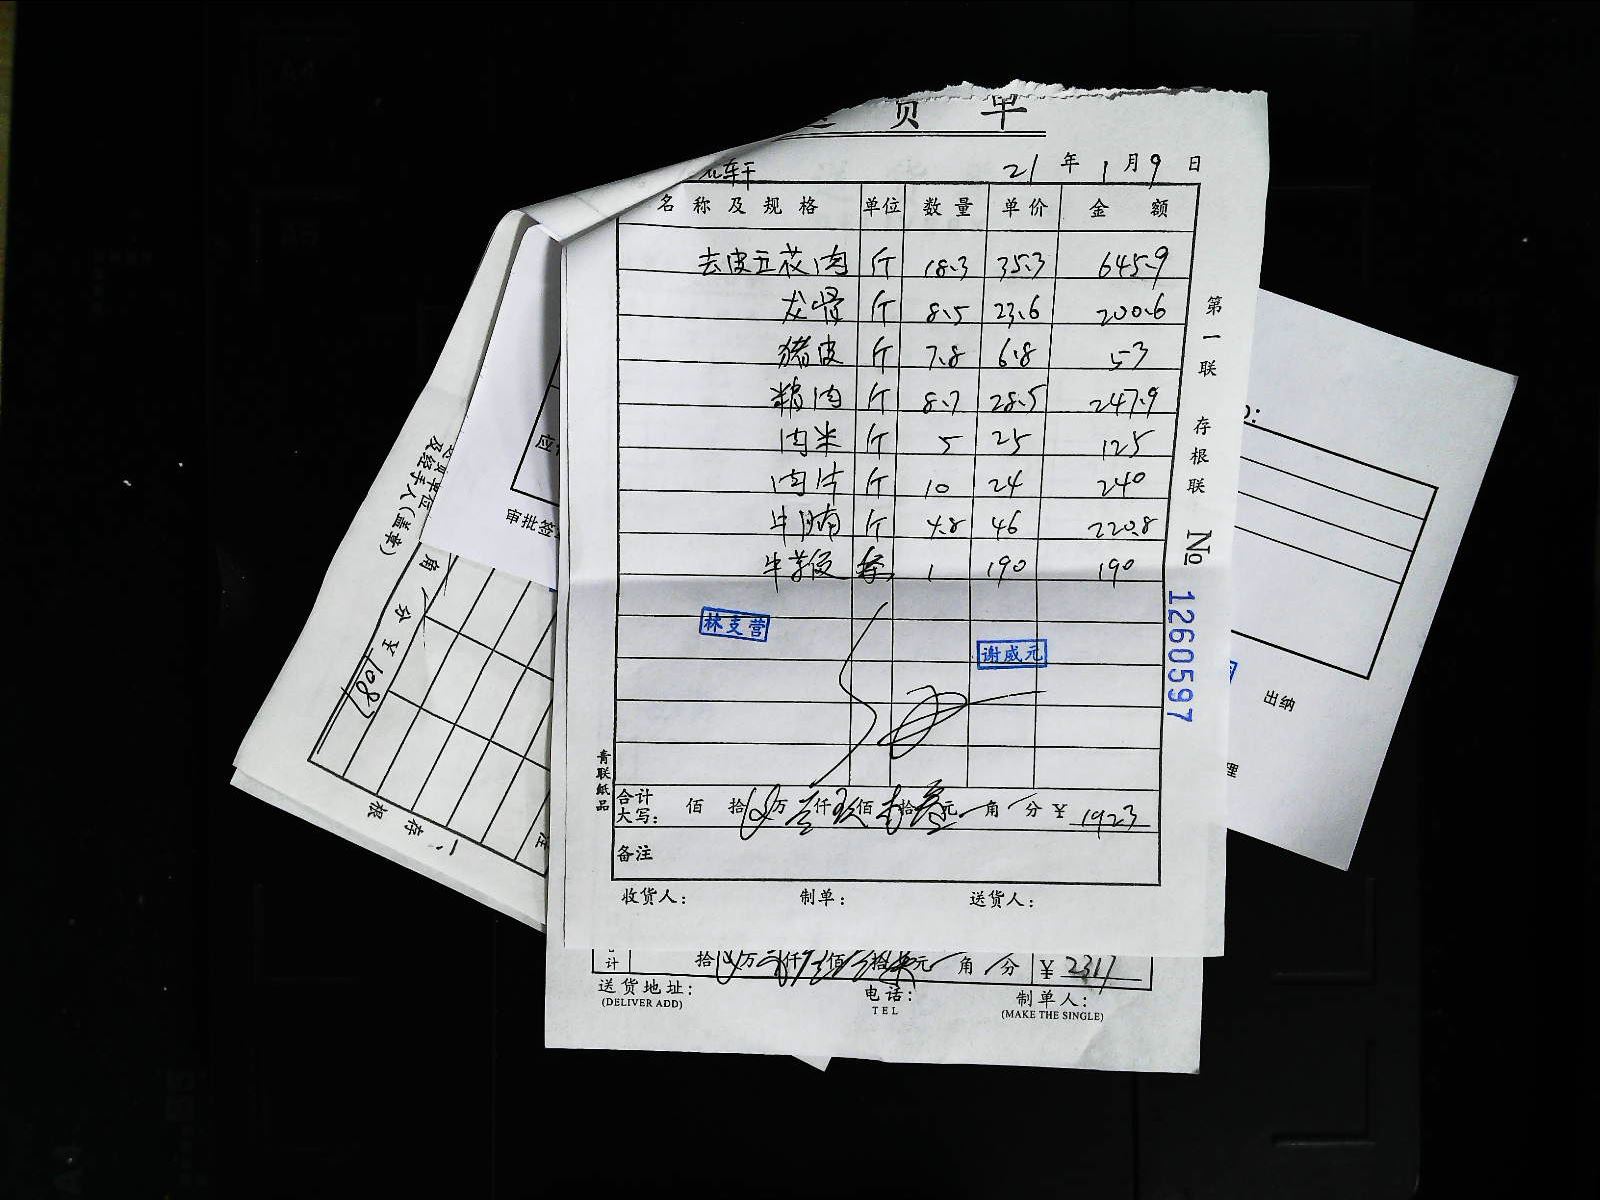 货单
21年1月9日
名称及规格 单位 数量 单价 金额
去皮五花肉 斤 18.3 35.3 645.9
龙骨 斤 8.5 23.6 200.6
猪皮 斤 7.8 6.8 53
精肉 斤 8.7 28.5 247.9
肉米 斤 5 25 125
肉片 斤 10 24 240
牛腩 斤 4.8 46 220.8
牛 1 190 190
林支营
谢威元
合计
大写: 佰 拾 万 壹仟玖佰 拾叁元 角 分 ¥ 1923
备注
收货人: 制单: 送货人:
第一联 存根联 № 1260597
青联纸品
计 拾 万 仟 佰 拾 元 角 分 ¥ 2317
送货地址: 电话: 制单人:
(DELIVER ADD) TEL (MAKE THE SINGLE)
及经手人(盖章)
角 分 ¥ 1087
存根
应
审批签
出纳
理